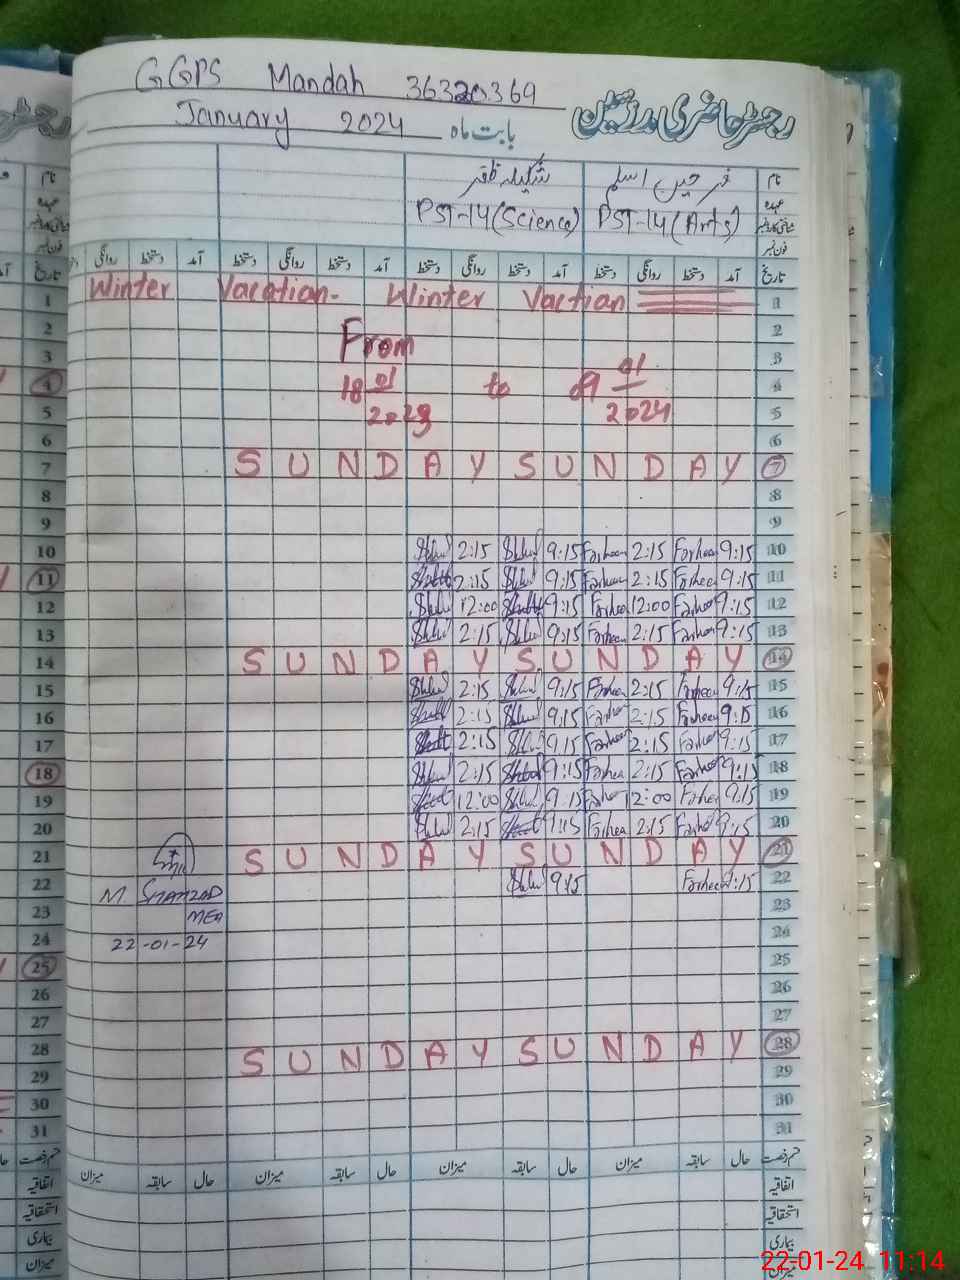 GGPS Mandah 36320369
رجسٹر حاضری مدرسین
January 2024 بابت ماہ
نام فرحین اسلم شکیلہ ظفر
عہدہ
PST-14 (Arts) PST-14 (Science)
فون نمبر
تاریخ آمد دستخط روانگی دستخط آمد دستخط روانگی دستخط آمد دستخط روانگی دستخط آمد دستخط روانگی
1 Winter Vacation- Winter Vactian 1
2 From 2
3 3
4 18 01 2023 to 09 01 2024 4
5 5
6 6
7 SUNDAY SUNDAY 7
8 8
9 9
10 2:15 9:15 Farheen 2:15 Farheen 9:15 10
11 2:15 9:15 Farheen 2:15 Farheen 9:15 11
12 12:00 9:15 Farheen 12:00 Farheen 9:15 12
13 2:15 9:15 Farheen 2:15 Farheen 9:15 13
14 SUNDAY SUNDAY 14
15 2:15 9:15 Farheen 2:15 Farheen 9:15 15
16 2:15 9:15 Farheen 2:15 Farheen 9:15 16
17 2:15 9:15 Farheen 2:15 Farheen 9:15 17
18 2:15 9:15 Farhea 2:15 Farhee 9:15 18
19 12:00 9:15 Farhen 12:00 Farhee 9:15 19
20 2:15 9:15 Farhea 2:15 Farhee 9:15 20
21 SUNDAY SUNDAY 21
22 9:15 Farheen 9:15 22
M. SHAHZAD
23 MEA 23
24 22-01-24 24
25 25
26 26
27 27
28 SUNDAY SUNDAY 28
29 29
30 30
31 31
قسم رخصت حال سابقہ میزان حال سابقہ میزان حال سابقہ میزان حال سابقہ میزان
اتفاقیہ
استحقاقیہ
بیماری
میزان
22-01-24 11:14